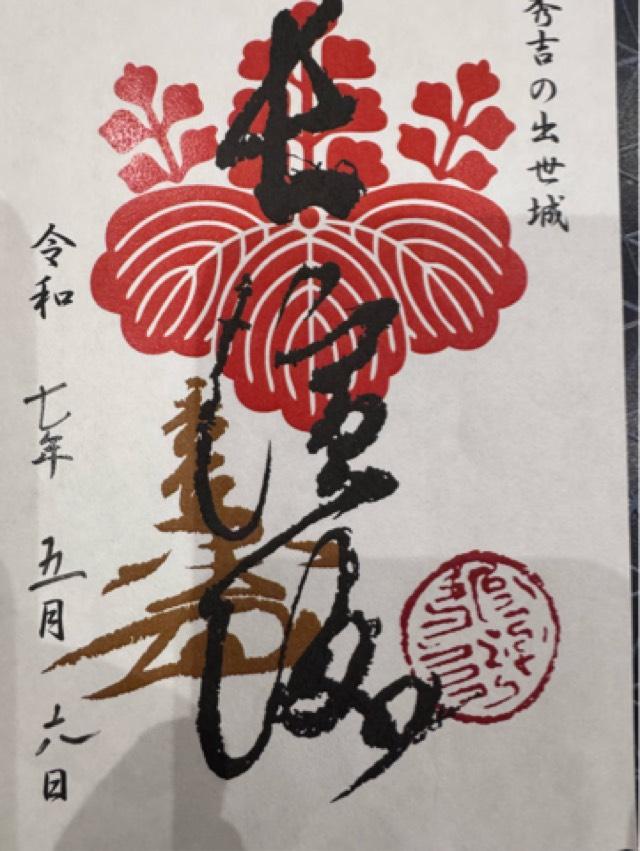 秀吉の出世城
長濱城
令和 七年 五月 六日